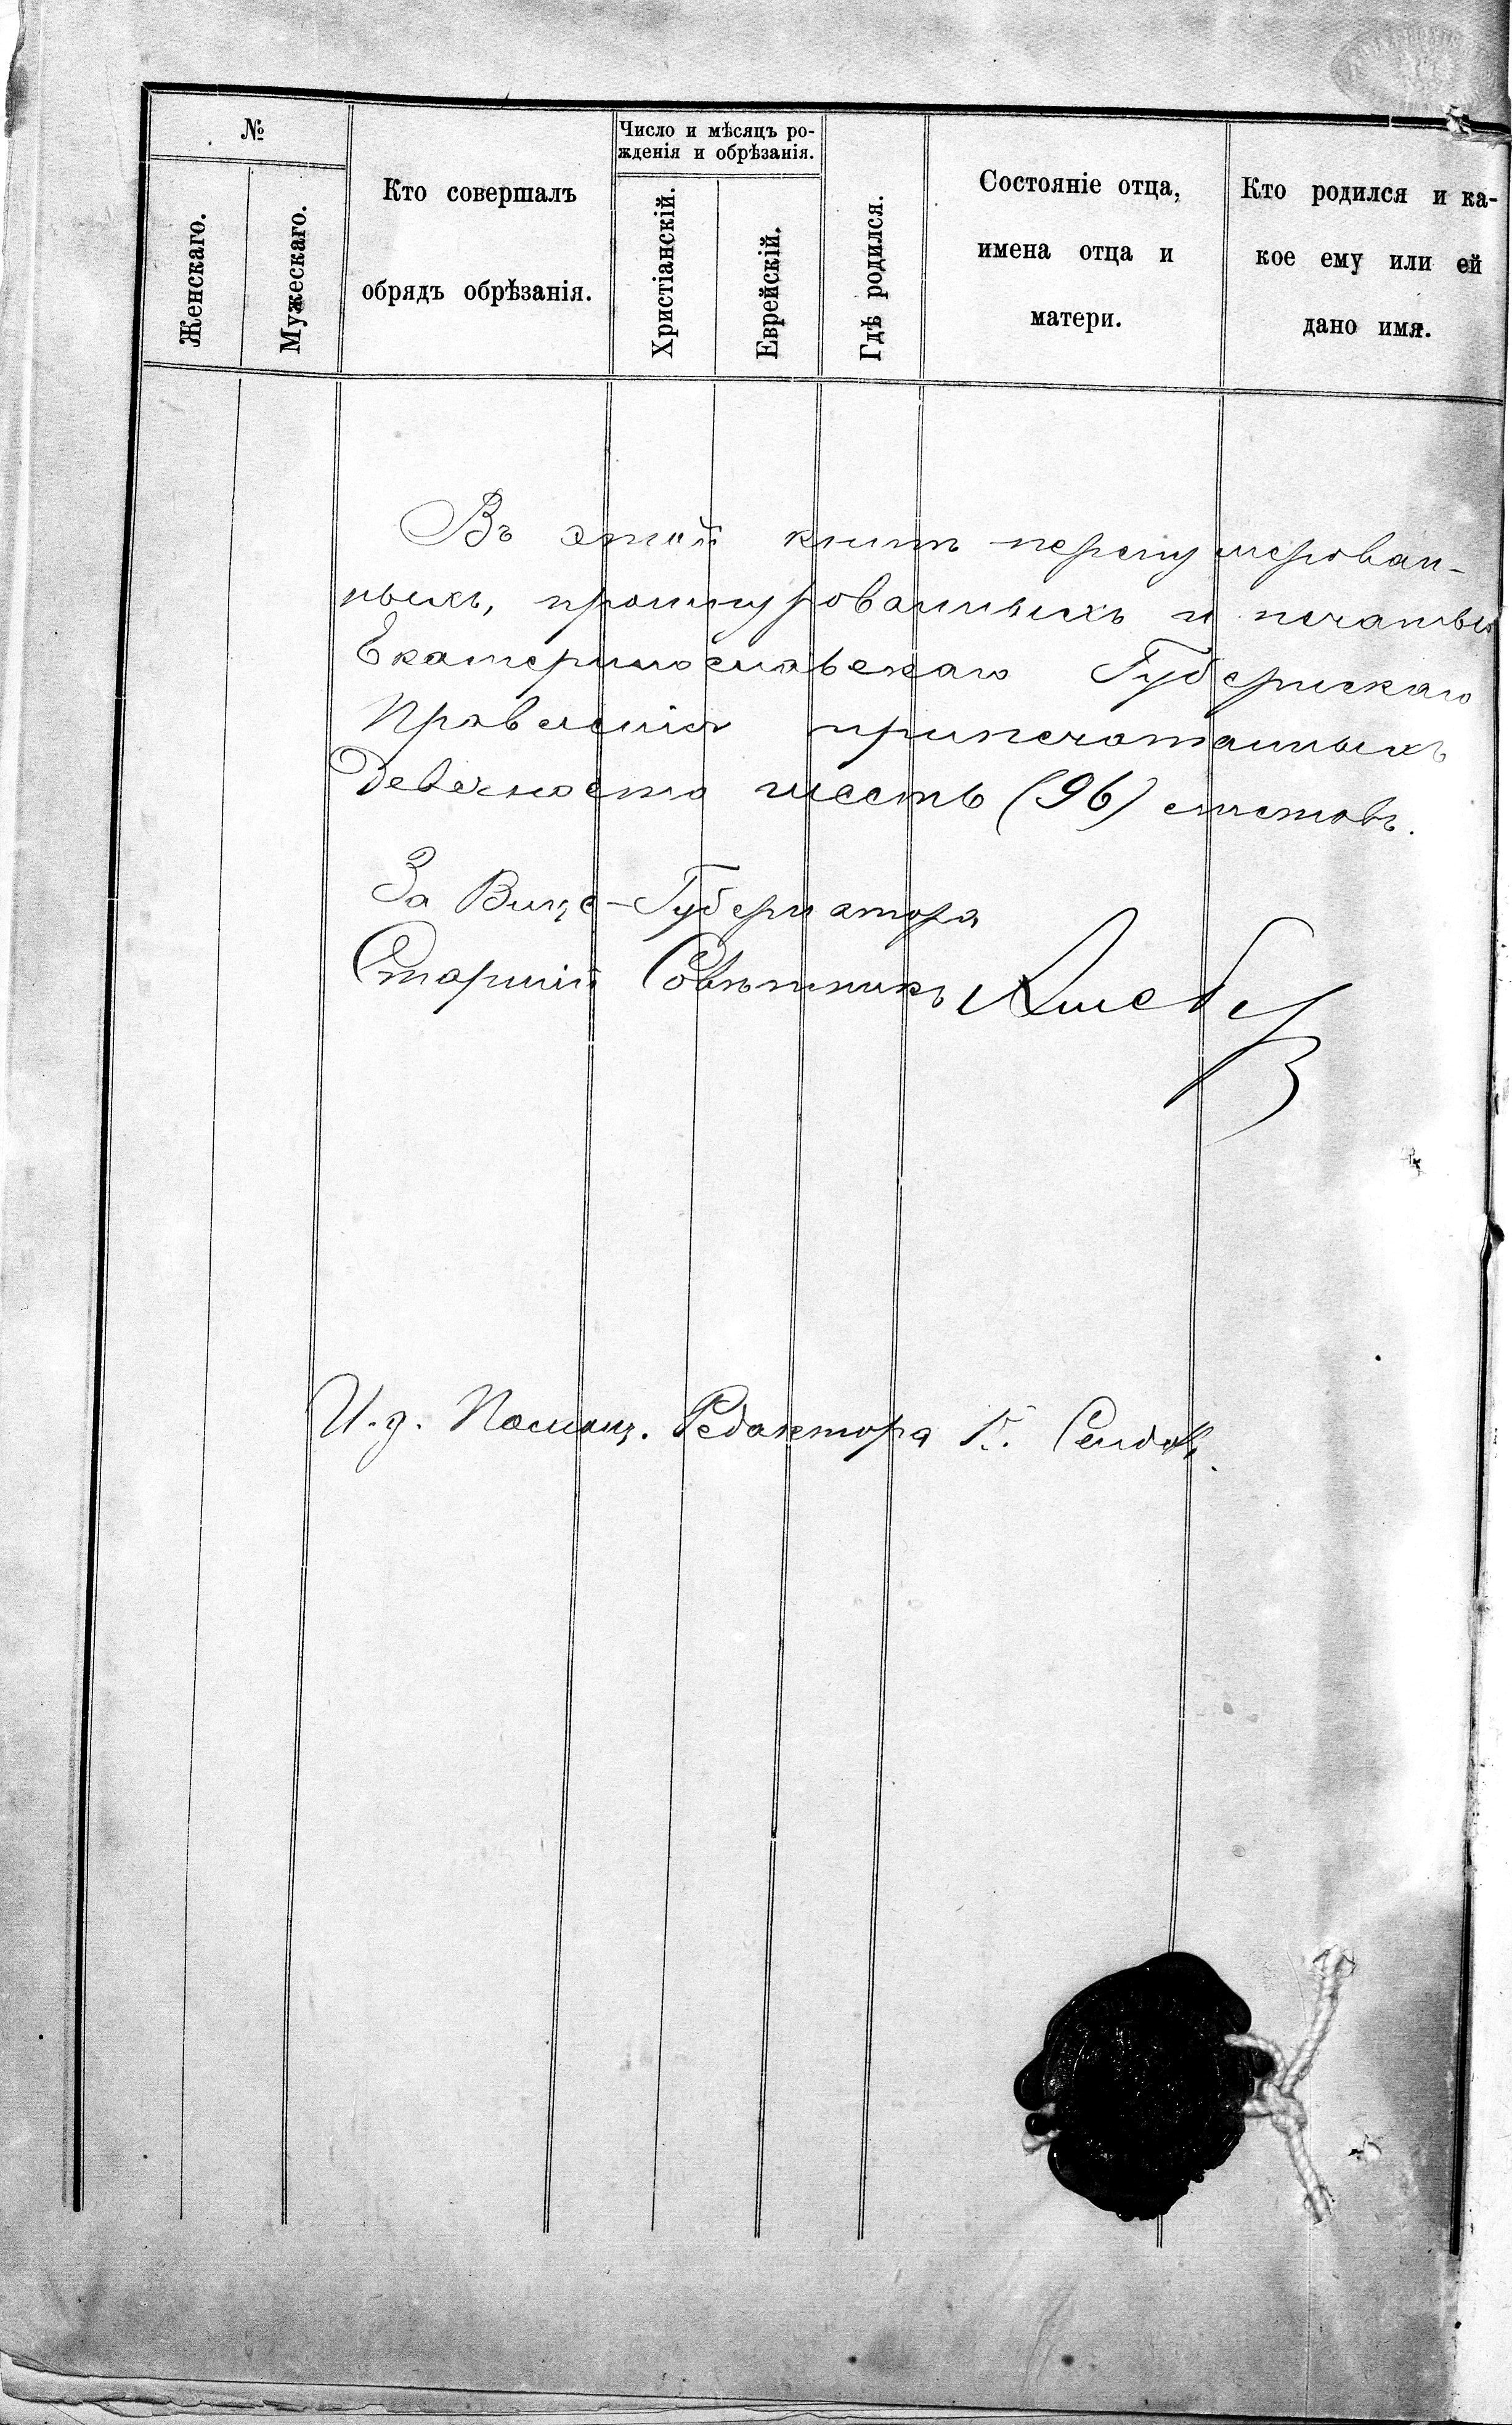 №
Женскаго.
Мужескаго.
Кто совершалъ
обрядъ обрѣзанія.
Число и мѣсяцъ ро-
жденія и обрѣзанія.
Христіанскій.
Еврейскій.
Гдѣ родился.
Состояніе отца,
имена отца и
матери.
Кто родился и ка-
кое ему или ей
дано имя.
Въ этой книгѣ перенумерован-
ныхъ, прошнурованныхъ и печатью
Екатеринославскаго Губернскаго
Правленія припечатанныхъ
Девяносто шесть (96) листовъ.
За Вице-Губернатора
Старшій Совѣтникъ
И.д. Помощ. Редактора К.